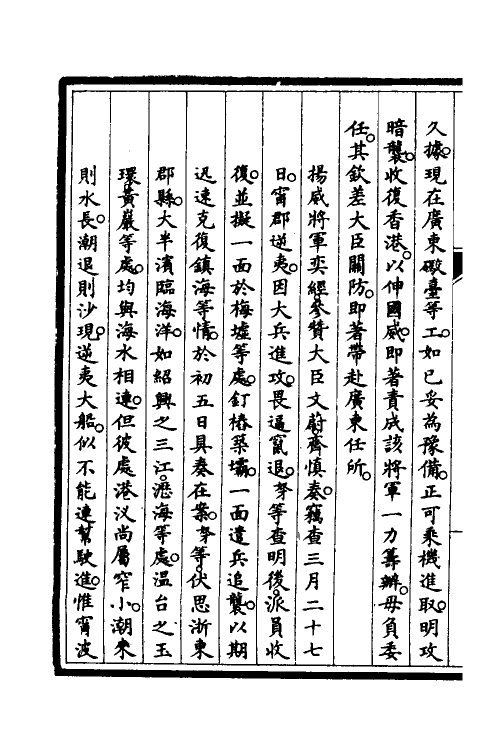 久據。現在廣東礮臺等工。如已妥為豫備。正可乘機進取。明攻
暗襲。收復香港。以伸國威。即著責成該將軍一力籌辦。毋負委
任。其欽差大臣關防。即著帶赴廣東任所。
揚威將軍奕經。參贊大臣文蔚。齊慎。奏。竊查三月二十七
日。甯郡逆夷。因大兵進攻。畏逼竄退。奴等查明後。派員收
復。並擬一面於梅墟等處。釘樁築壩。一面遣兵追襲。以期
迅速克復鎮海等情。於初五日具奏在案。奴等。伏思浙東
郡縣。大半濱臨海洋。如紹興之三江。瀝海等處。温台之玉
環黃巖等處。均與海水相連。但彼處港汊尚屬窄小。潮來
則水長。潮退則沙現。逆夷大船。似不能連幫駛進。惟甯波